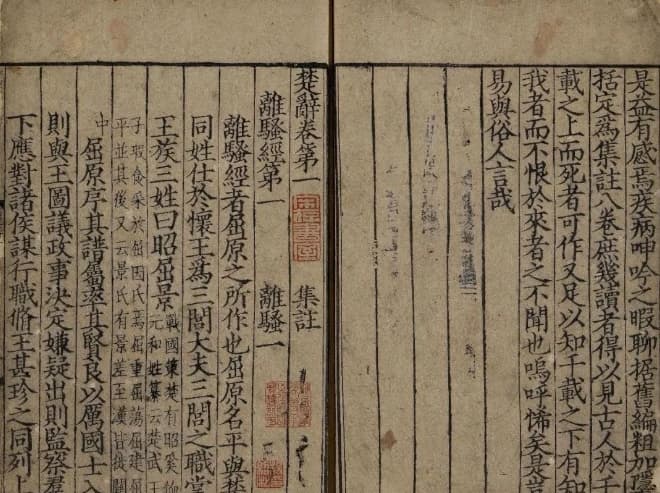 是益有感焉疾病呻吟之暇聊據舊編粗加檃
括定為集註八卷庶幾讀者得以見古人於千
載之上而死者可作又足以知千載之下有知
我者而不恨於來者之不聞也嗚呼悕矣是豈
易與俗人言哉
楚辭卷第一 集註
離騷經第一 離騷一
離騷經者屈原之所作也屈原名平與楚
同姓仕於懷王為三閭大夫三閭之職掌
王族三姓曰昭屈景
戰國策楚有昭奚恤
元和姓纂云楚武王
子瑕食采於屈因氏焉屈重屈蕩屈建屈
平並其後又云景氏有景差至漢皆徙關
中
屈原序其譜屬率其賢良以厲國士入
則與王圖議政事決定嫌疑出則監察羣
下應對諸侯謀行職脩王甚珍之同列上